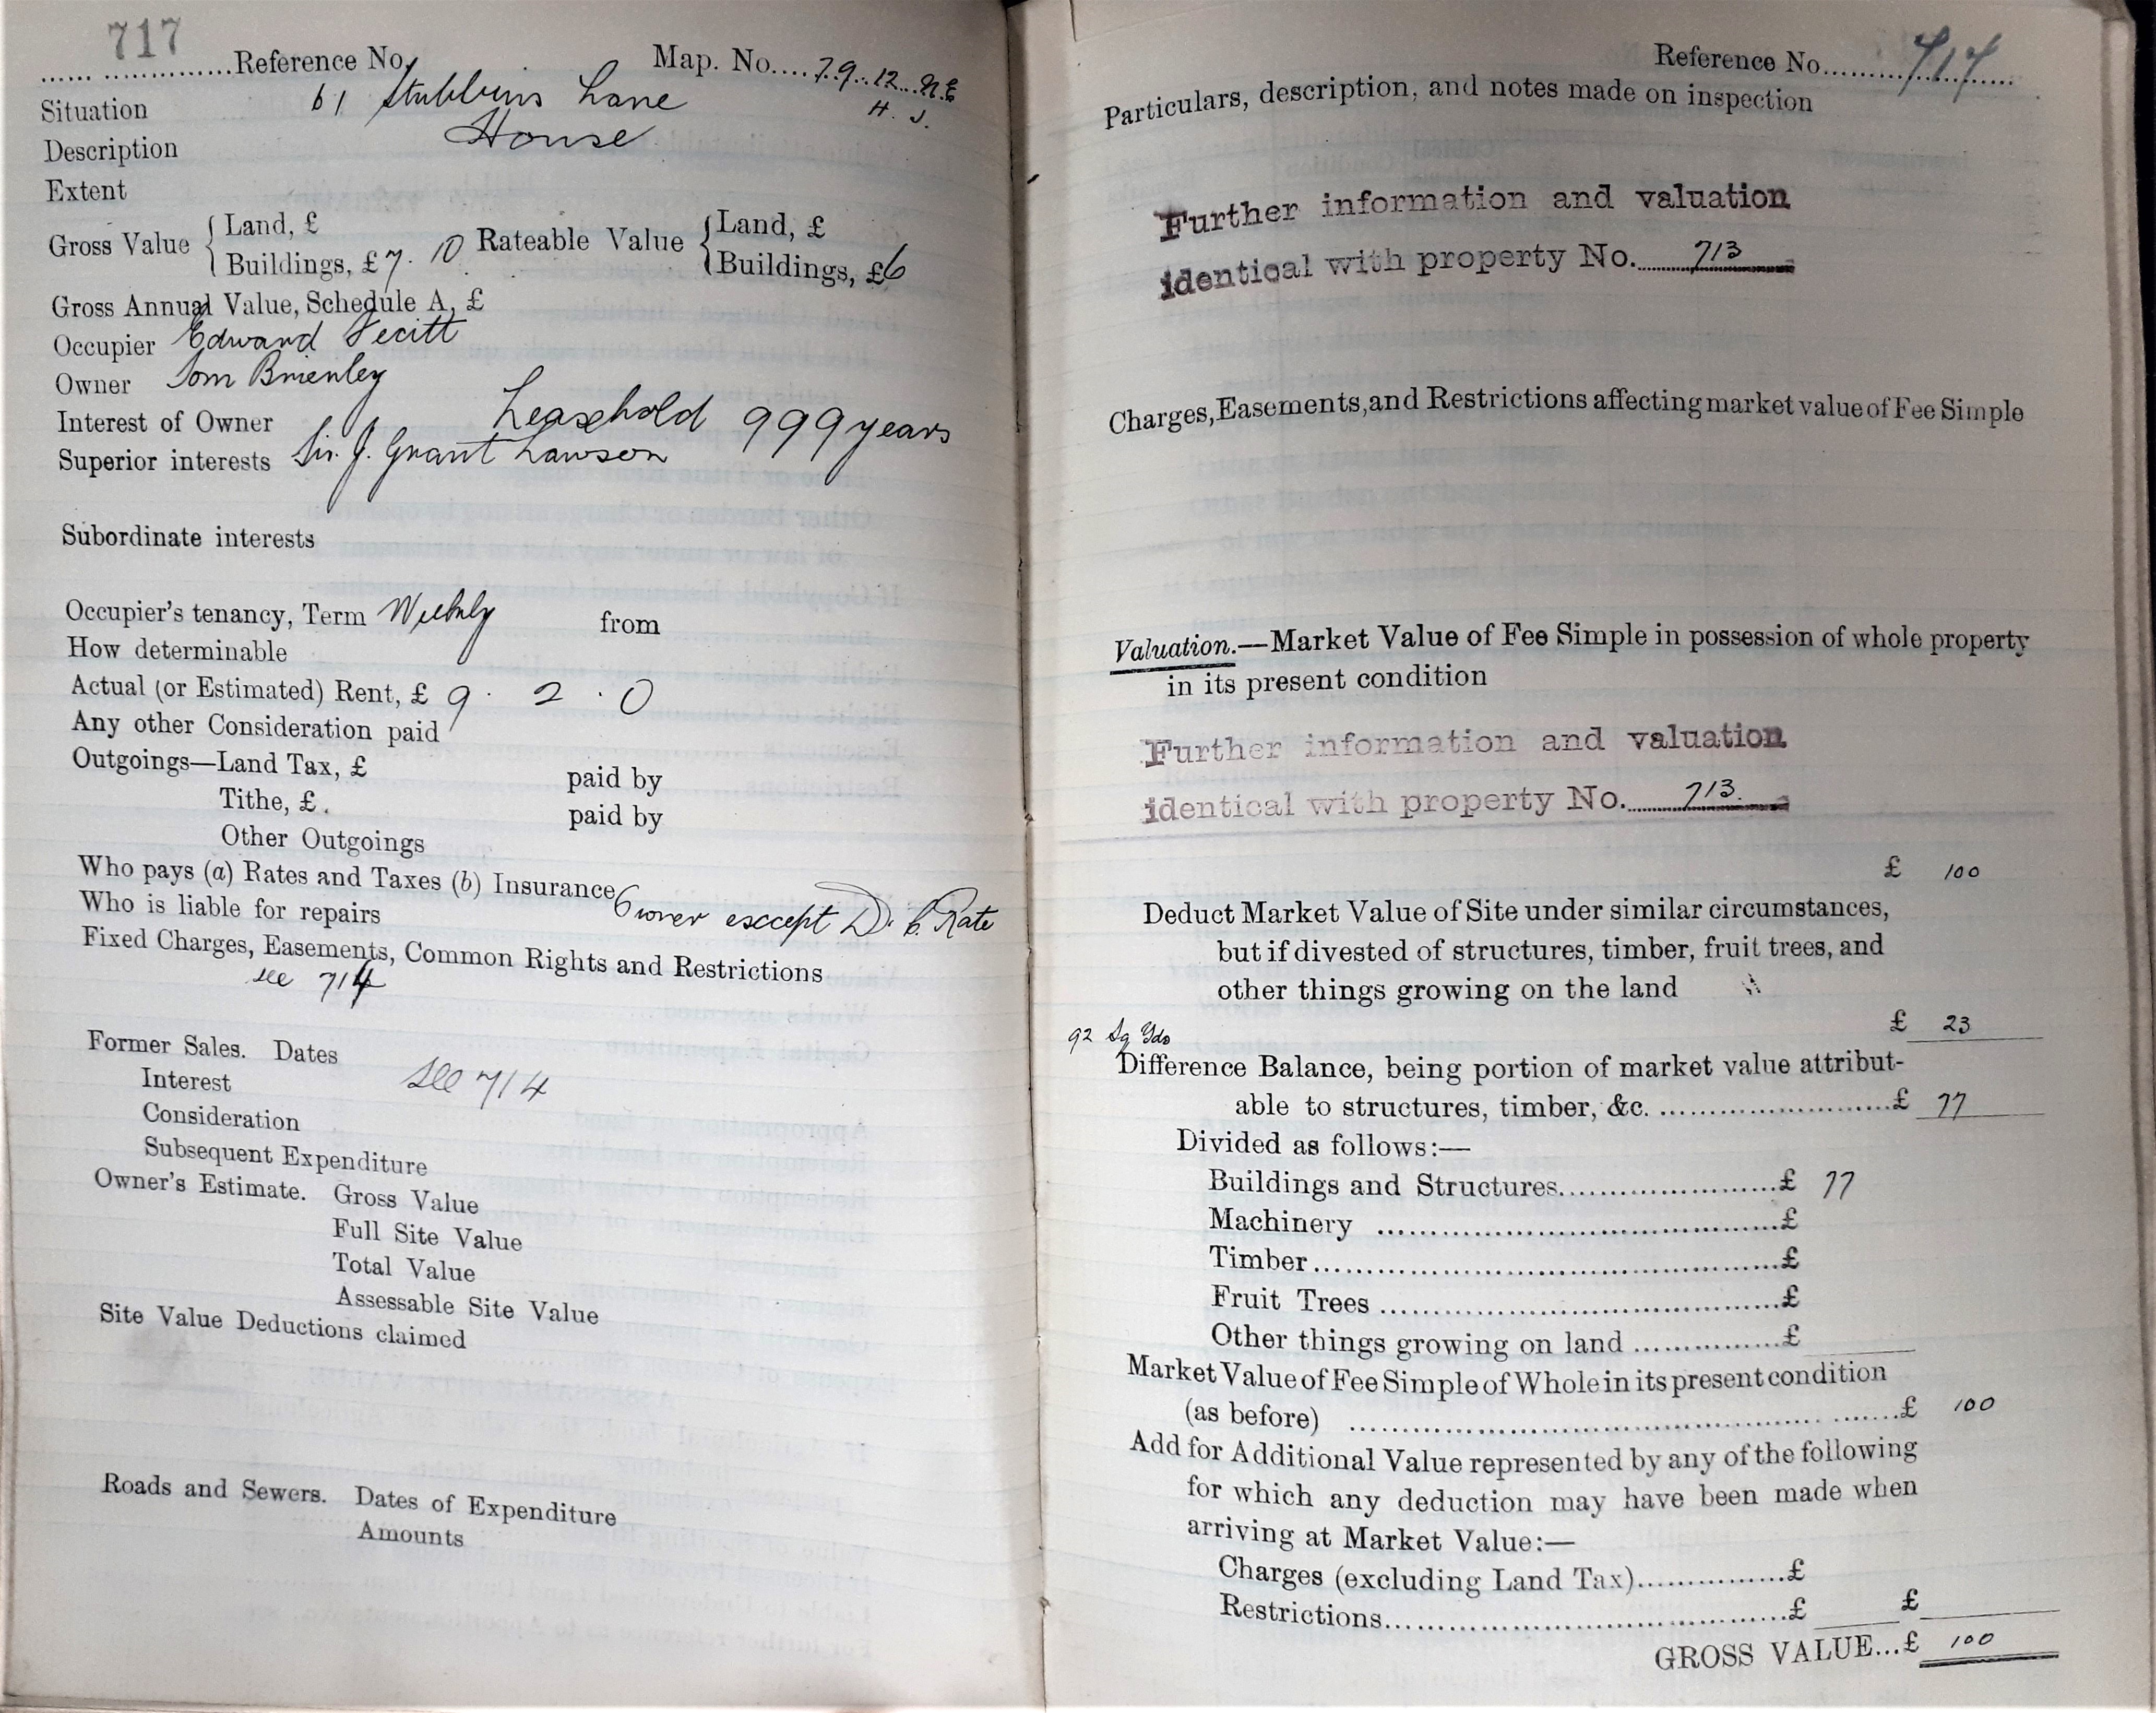 717
...... ...............Reference No. Map. No....79..12...N.E
Situation 61 Stubbins Lane H. J.
Description House
Extent
Gross Value { Land, £ Rateable Value { Land, £
Buildings, £ 7. 10 Buildings, £6
Gross Annual Value, Schedule A, £
Occupier Edward Pecitt
Owner Tom Brienley
Interest of Owner Leasehold 999 years
Superior interests Sir. J. Grant Lawson
Subordinate interests
Occupier's tenancy, Term Weekly from
How determinable
Actual (or Estimated) Rent, £ 9 . 2 . 0
Any other Consideration paid
Outgoings—Land Tax, £ paid by
Tithe, £ . paid by
Other Outgoings
Who pays (a) Rates and Taxes (b) Insurance
Who is liable for repairs Owner except D. C. Rate
Fixed Charges, Easements, Common Rights and Restrictions
see 714
Former Sales. Dates
Interest see 714
Consideration
Subsequent Expenditure
Owner's Estimate. Gross Value
Full Site Value
Total Value
Assessable Site Value
Site Value Deductions claimed
Roads and Sewers. Dates of Expenditure
Amounts
Reference No...........717......
Particulars, description, and notes made on inspection
Further information and valuation
identical with property No. 713
Charges, Easements, and Restrictions affecting market value of Fee Simple
Valuation.—Market Value of Fee Simple in possession of whole property
in its present condition
Further information and valuation
identical with property No. 713.
£ 100
Deduct Market Value of Site under similar circumstances,
but if divested of structures, timber, fruit trees, and
other things growing on the land
92 Sq Yds £ 23
Difference Balance, being portion of market value attribut-
able to structures, timber, &c. ..........................£ 77
Divided as follows:—
Buildings and Structures........................£ 77
Machinery ............................................£
Timber...................................................£
Fruit Trees ............................................£
Other things growing on land .................£
Market Value of Fee Simple of Whole in its present condition
(as before) .......................................................£ 100
Add for Additional Value represented by any of the following
for which any deduction may have been made when
arriving at Market Value:—
Charges (excluding Land Tax)................£
Restrictions............................................£ £
GROSS VALUE...£ 100